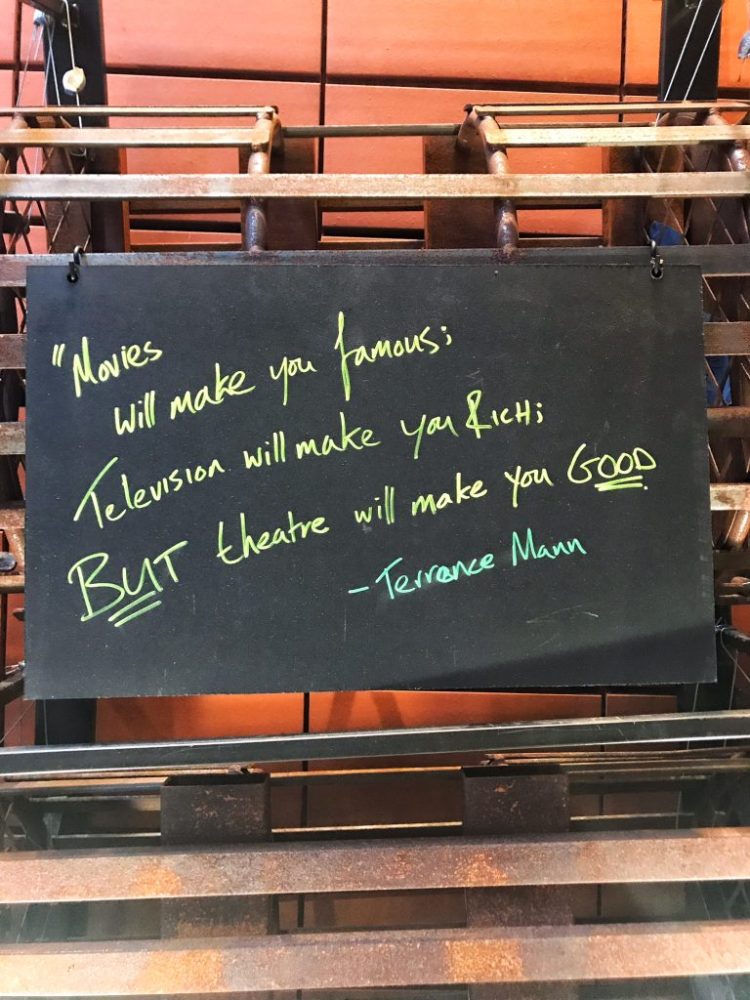 "Movies
will make you famous;
Television will make you RICH;
BUT theatre will make you GOOD.
- Terrence Mann